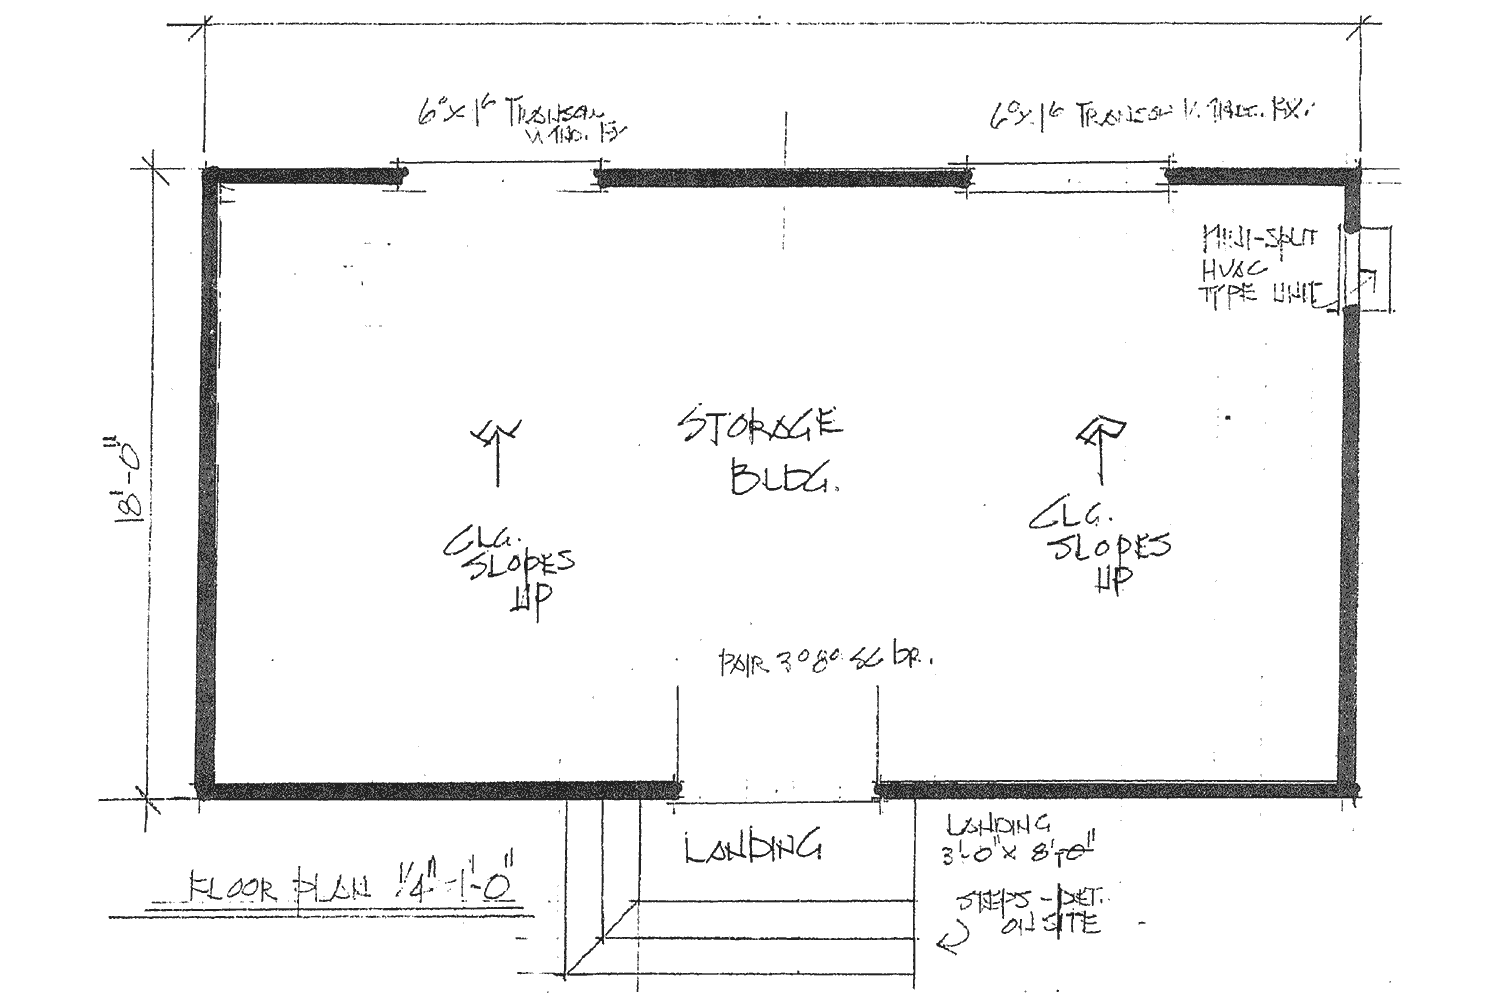 6⁰x1⁶ TRANSOM
WIND. FX
6⁰x1⁶ TRANSOM
MINI-SPLIT
HVAC
TYPE UNIT
18'-0"
STORAGE
BLDG.
CLG.
SLOPES
UP
CLG.
SLOPES
UP
PAIR 3⁰8⁰ SC DR.
LANDING
LANDING
3'-0" X 8'-0"
STEPS - DET.
ON SITE
FLOOR PLAN 1/4"=1'-0"